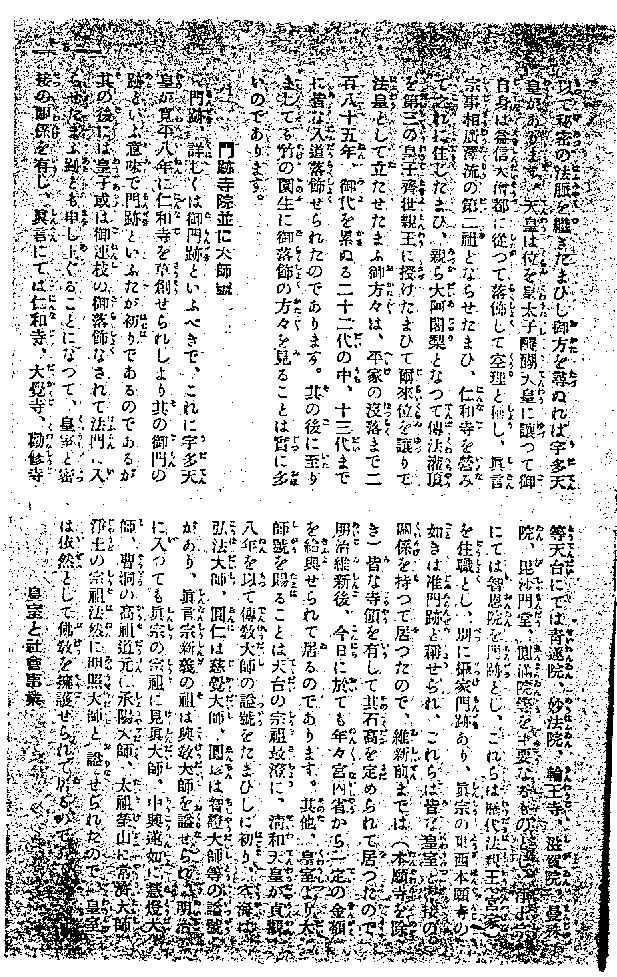 以て秘密の法脈を繼ぎたまひし御方を尋ぬれば宇多天
皇があります。天皇は位を皇太子醍醐天皇に讓つて御
自身は益信大僧都に從つて落飾して空理と稱し、眞言
宗事相廣澤流の第二祖とならせたまひ、仁和寺を營み
て之れに住したまひ、親ら大阿闍梨となつて傳法灌頂
を第三の皇子齊世親王に授けたまひて爾來位を讓りて
法皇として立たせたまふ御方々は、平家の沒落まで二
百八十五年、御代を累ぬる二十二代の中、十三代まで
に皆な入道落飾せられたのであります。其の後に至り
ましても竹の園生に御落飾の方々を見ることは實に多
いのであります。
門跡寺院並に大師號
門跡、詳しくは御門跡といふべきで、これに宇多天
皇が寛平八年に仁和寺を草創せられしより其の御門の
跡といふ意味で門跡といふたが初りであるのであるが
其の後には皇子或は御連枝の御落飾なされて法門に入
らせたまふ
とも申し上ぐることになつて、皇室と密
接の關係を有し、眞言にては仁和寺、大覺寺、勸修寺
等天台にては靑蓮院、妙法院、輪王寺、滋賀院、曼殊
院、毘沙門堂、圓滿院等を主要なるもの
にては智恩院を門跡とし、これらは歷代法親王(宮家)
を住職とし、別に攝家門跡あり、眞宗の東西本願寺の
如きは准門跡と稱せられ、これらは皆な皇室と密接の
關係を持つて居つたので、維新前までは(本願寺を除
き)皆な寺領を有して其石高を定められて居つたので
明治維新後、今日に於ても年々宮内省から一定の金額
を給與せられて居るのであります。其他、皇室より大
師號を賜ることは天台の宗祖最澄に、淸和天皇が貞觀
八年を以て傳敎大師の諡號をたまひしに初り、空海は
弘法大師、圓仁は慈覺大師、圓珍は智證大師等の諡號
があり、眞言宗新義の祖は興敎大師を諡せられ明治
に入つても眞宗の宗祖に見眞大師、中興蓮如に慧燈大
師、曹洞の高祖道元に承陽大師、太祖瑩山に常濟大師
淨土の宗祖法然に明照大師と諡せられたので、皇室
は依然として佛敎を擁護せられて居るので
皇室と社會事業